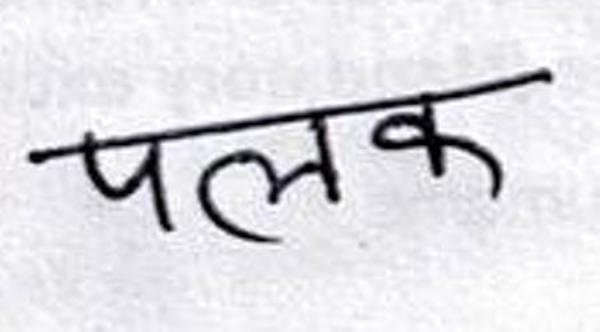 पलक